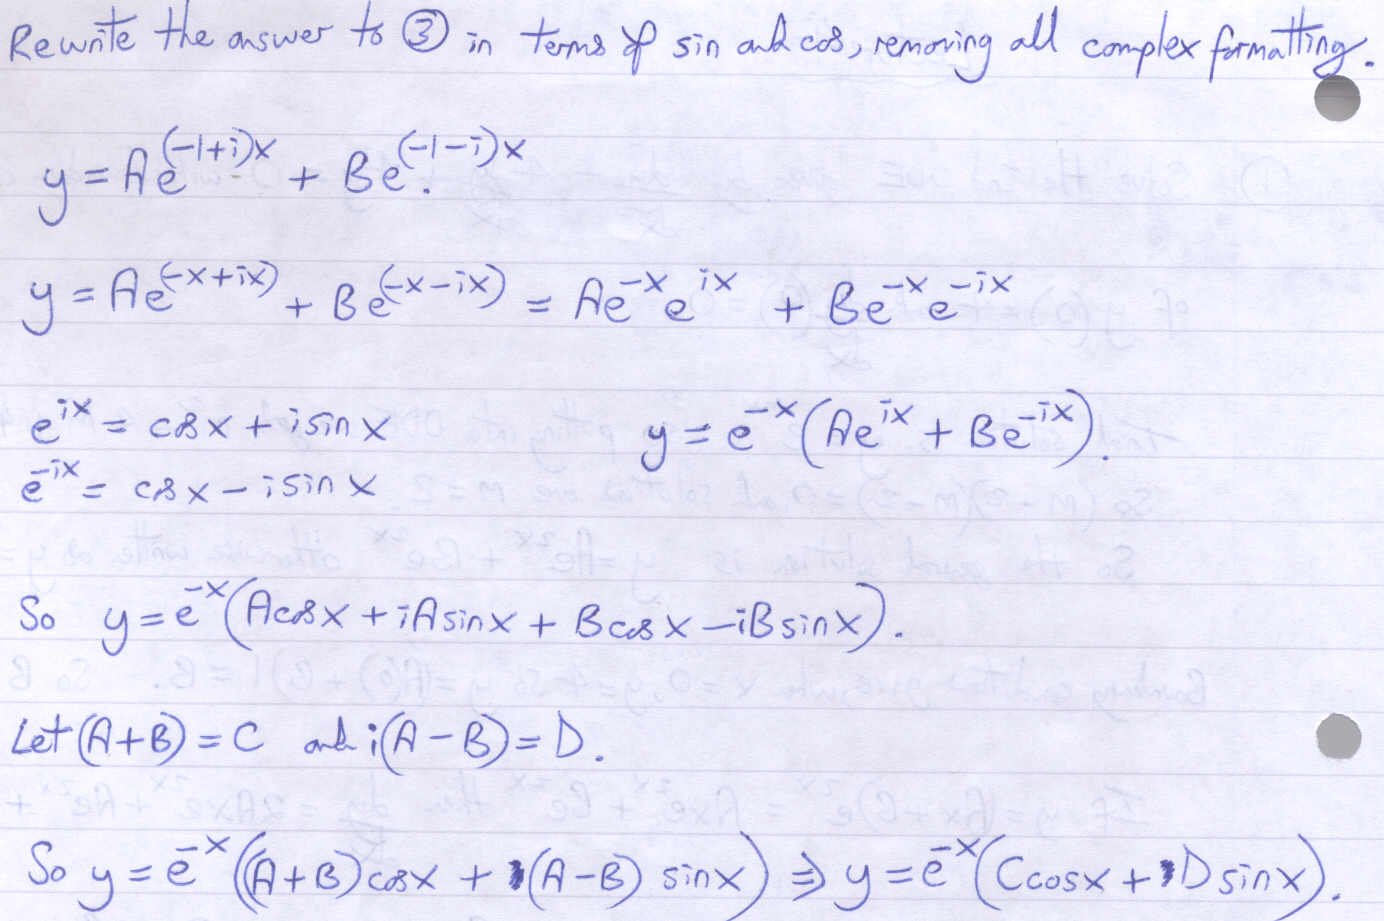 Rewrite the answer to ③ in terms of sin and cos, removing all complex formatting.
y = Ae^(-1+i)x + Be^(-1-i)x.
y = Ae^(-x+ix) + Be^(-x-ix) = Ae^-x e^ix + Be^-x e^-ix
e^ix = cosx + isinx y = e^-x(Ae^ix + Be^-ix).
e^-ix = cosx - isinx
So y = e^-x(Acosx + iAsinx + Bcosx - iBsinx).
Let (A+B) = C and i(A-B) = D.
So y = e^-x((A+B)cosx + i(A-B) sinx) ⇒ y = e^-x(Ccosx + Dsinx).